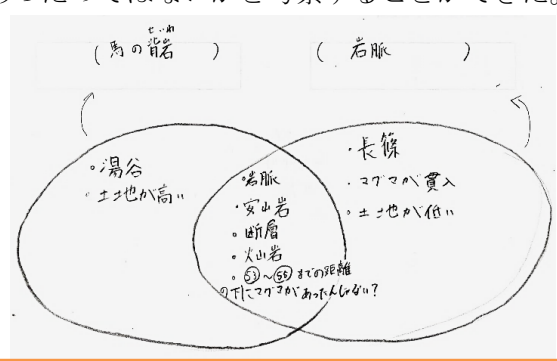 ったのではないかと考察することができた。
(馬の背岩)
せいわ
(岩脈)
・湯谷
・土地が高い
・岩脈
・安山岩
・断層
・火山岩
・㊾～
までの距離
の下にマグマがあったんじゃない?
・長篠
・マグマが貫入
・土地が低い